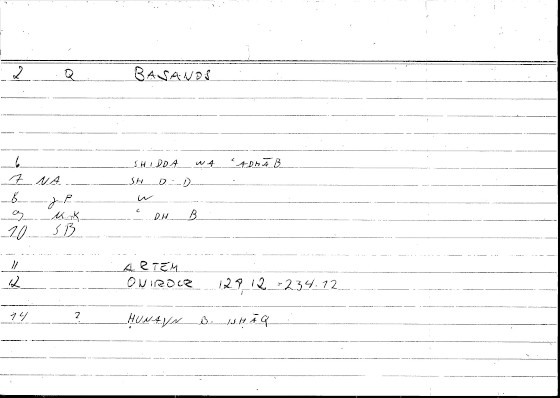 2 Q BASANOS
6 SHIDDA WA ʿADHĀB
7 NA SH D-D
8 gP W
9 MK ʿ DH B
10 SB
11 ARTEM
12 ONIROCR 129,12 -234.12
14 ? ḤUNAYN B. ISḤĀQ